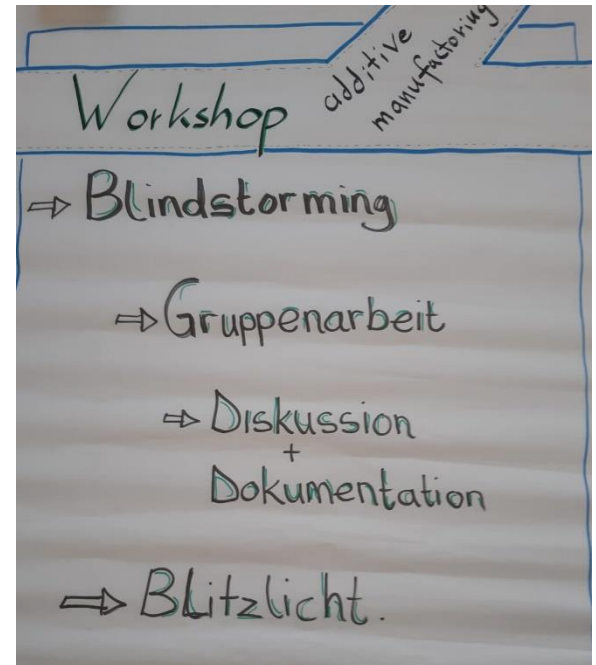 additive
manufactoring
Workshop
⇒ Blindstorming
⇒ Gruppenarbeit
⇒ Diskussion
+
Dokumentation
⇒ Blitzlicht.